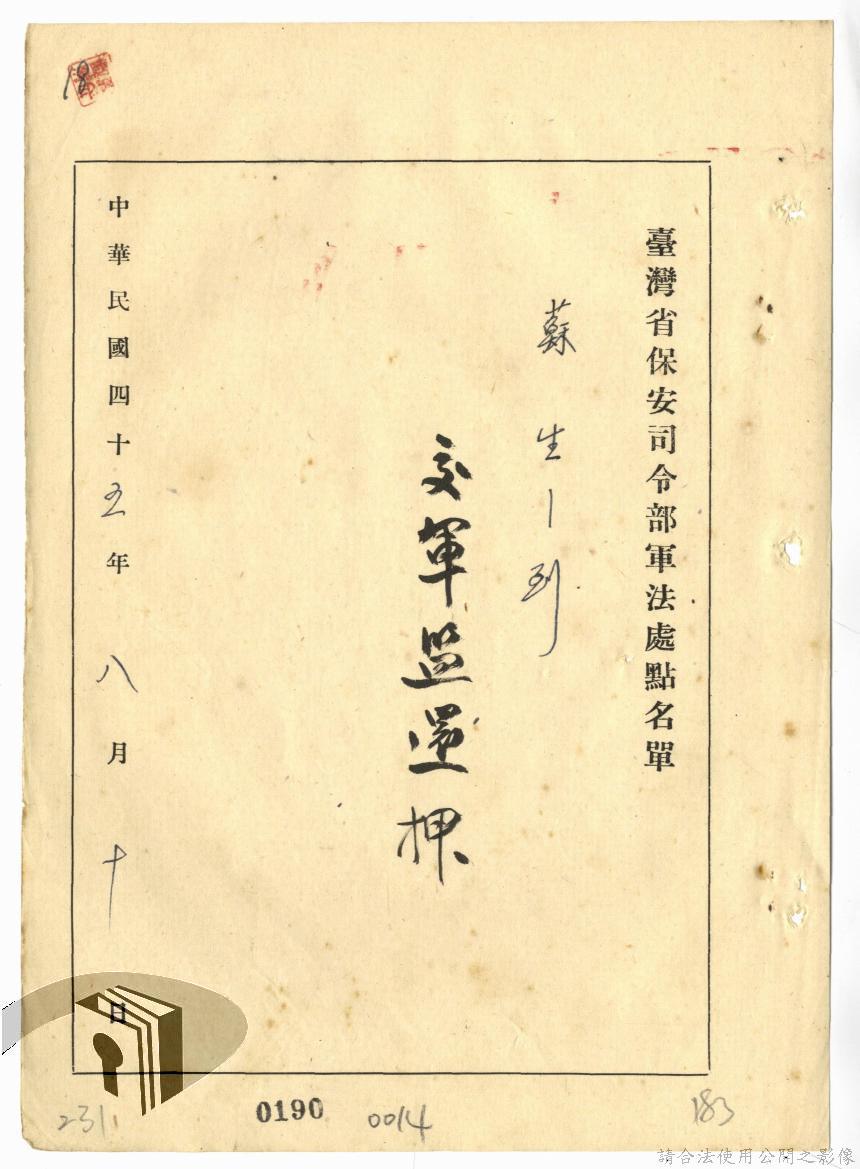 臺灣省保安司令部軍法處點名單
蘇生 到
交軍監還押
中華民國四十五年八月十日
231
0190
0014
183
請合法使用公開之影像